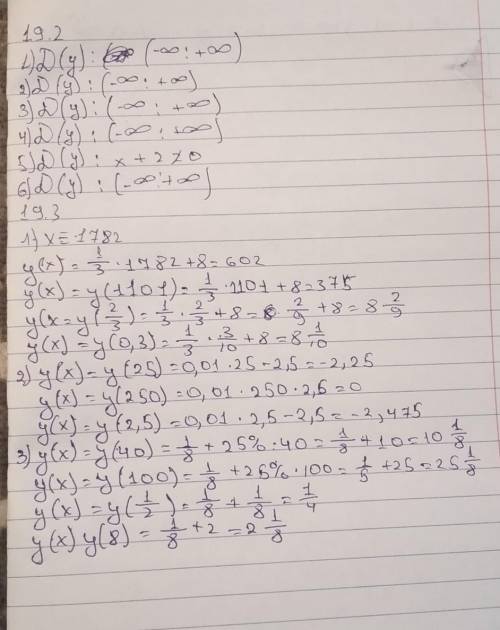 19.2
1) D(y) : (-∞ ; +∞)
2) D(y) : (-∞ ; +∞)
3) D(y) : (-∞ ; +∞)
4) D(y) : (-∞ ; +∞)
5) D(y) : x + 2 ≠ 0
6) D(y) : (-∞ ; +∞)
19.3
1) x = 1782
y(x) = 1/3 · 1782 + 8 = 602
y(x) = y(1101) = 1/3 · 1101 + 8 = 375
y(x = y(2/3) = 1/3 · 2/3 + 8 = 2/9 + 8 = 8 2/9
y(x) = y(0,3) = 1/3 · 3/10 + 8 = 8 1/10
2) y(x) = y(25) = 0,01 · 25 - 2,5 = -2,25
y(x) = y(250) = 0,01 · 250 · 2,5 = 0
y(x) = y(2,5) = 0,01 · 2,5 - 2,5 = -2,475
3) y(x) = y(40) = 1/8 + 25% · 40 = 1/8 + 10 = 10 1/8
y(x) = y(100) = 1/8 + 25% · 100 = 1/5 + 25 = 25 1/8
y(x) = y(1/2) = 1/8 + 1/8 = 1/4
y(x) y(8) = 1/8 + 2 = 2 1/8